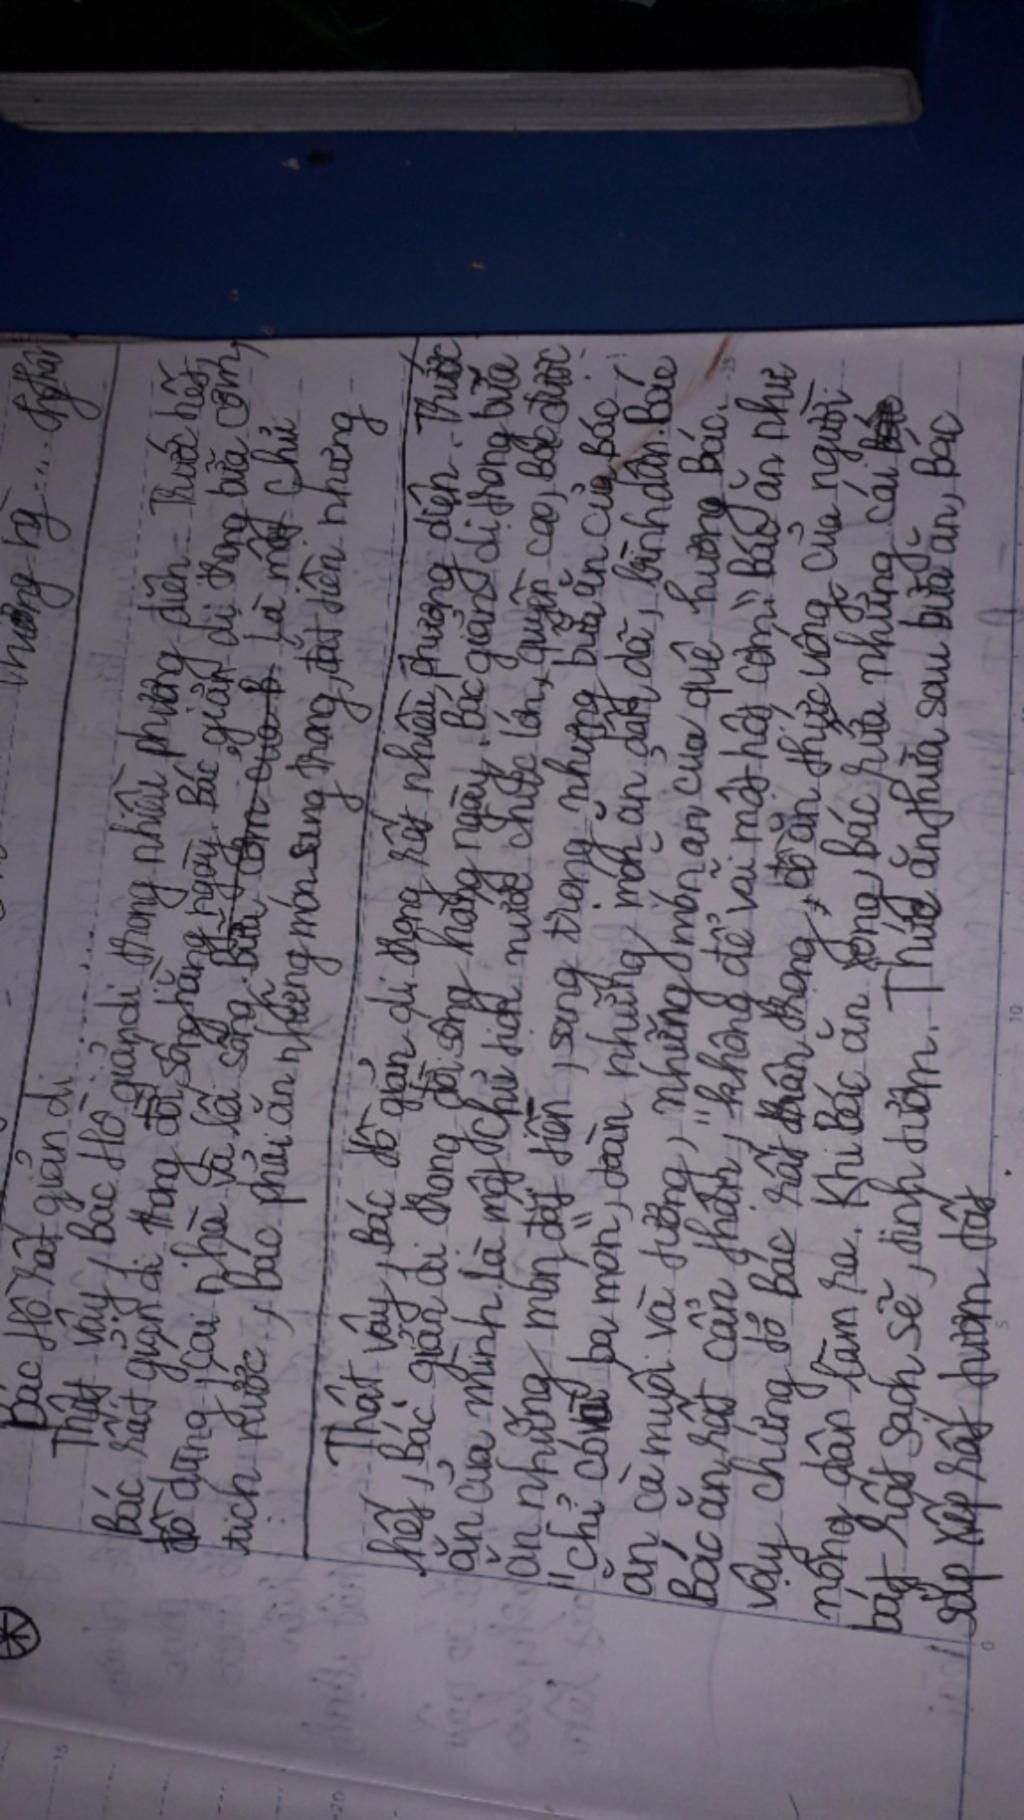 thương hg..... Nghĩa
Bác Hồ rất giản dị
Thật vậy, Bác Hồ giản dị trong nhiều phương diện. Trước hết,
Bác rất giản dị trong đời sống hằng ngày. Bác giản dị trong bữa cơm,
đồ dùng, cái nhà và lối sống. Bữa cơm của b Là một Chủ
tich nước, Bác phải ăn những món sang trọng, đắt tiền nhưng
Thật vậy, Bác Hồ giản dị trong rất nhiều phương diện. Trước
hết, Bác giản dị trong đời sống hằng ngày. Bác giản dị trong bữa
ăn của mình. Là một chủ tịch nước chức lớn, quyền cao, Bác được
ăn những món đắt tiền, song trong những bữa ăn của Bác
"chỉ có ba món", toàn những món ăn dân dã, bình dân. Bác
ăn cà muối và tương, những món ăn của quê hương Bác.
Bác ăn rất cẩn thận, "không để vãi một hột cơm". Bác ăn như
vậy chứng tỏ Bác rất trân trọng đồ ăn thức uống của người
nông dân làm ra. Khi Bác ăn xong, Bác rửa những cái
bát rất sạch sẽ, tinh tươm. Thức ăn thừa sau bữa ăn, Bác
sắp xếp rất tươm tất